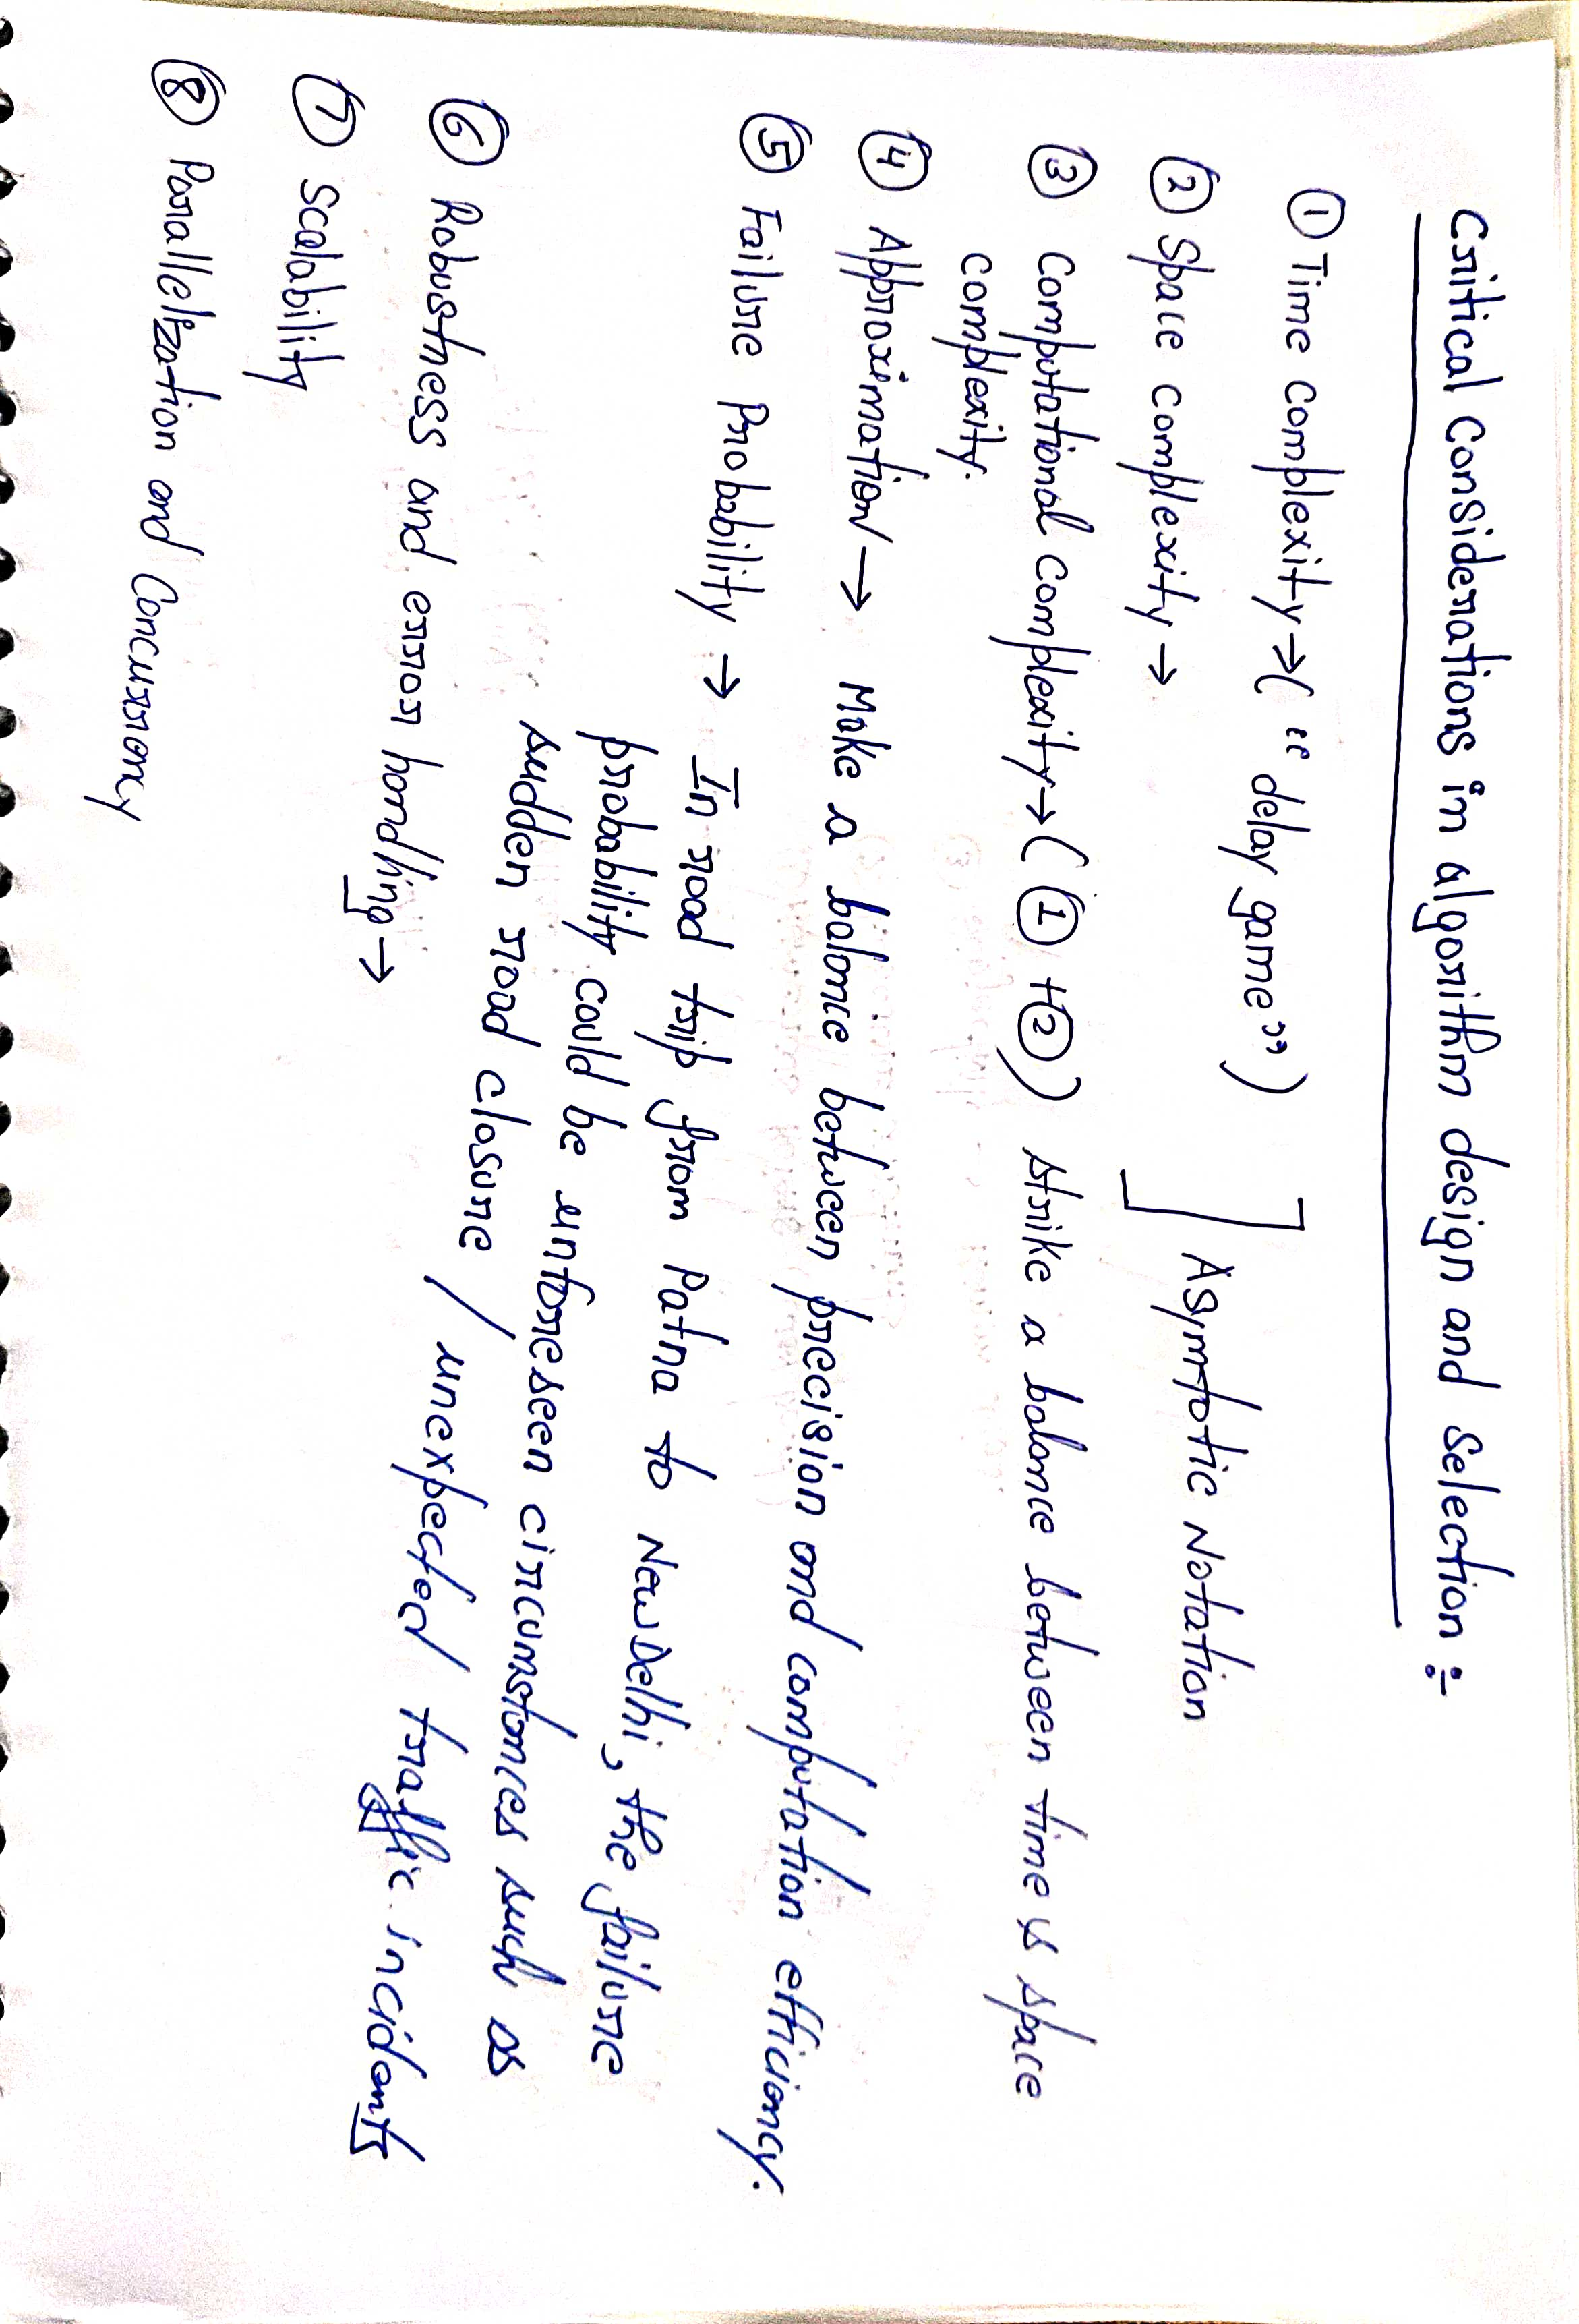 Critical Considerations in algorithm design and selection :-
① Time complexity → ( " delay game" )
② Space complexity →
] Asymtotic Notation
③ Computational complexity → ( ① + ② ) strike a balance between time & space
complexity.
④ Approximation → Make a balance between precision and computation efficiency.
⑤ Failure Probability → In road trip from Patna to New Delhi, the failure
probability could be unforeseen circumstances such as
sudden road closure / unexpected traffic incidents
⑥ Robustness and error handling →
⑦ Scalability
⑧ Parallelzation and Concurrency